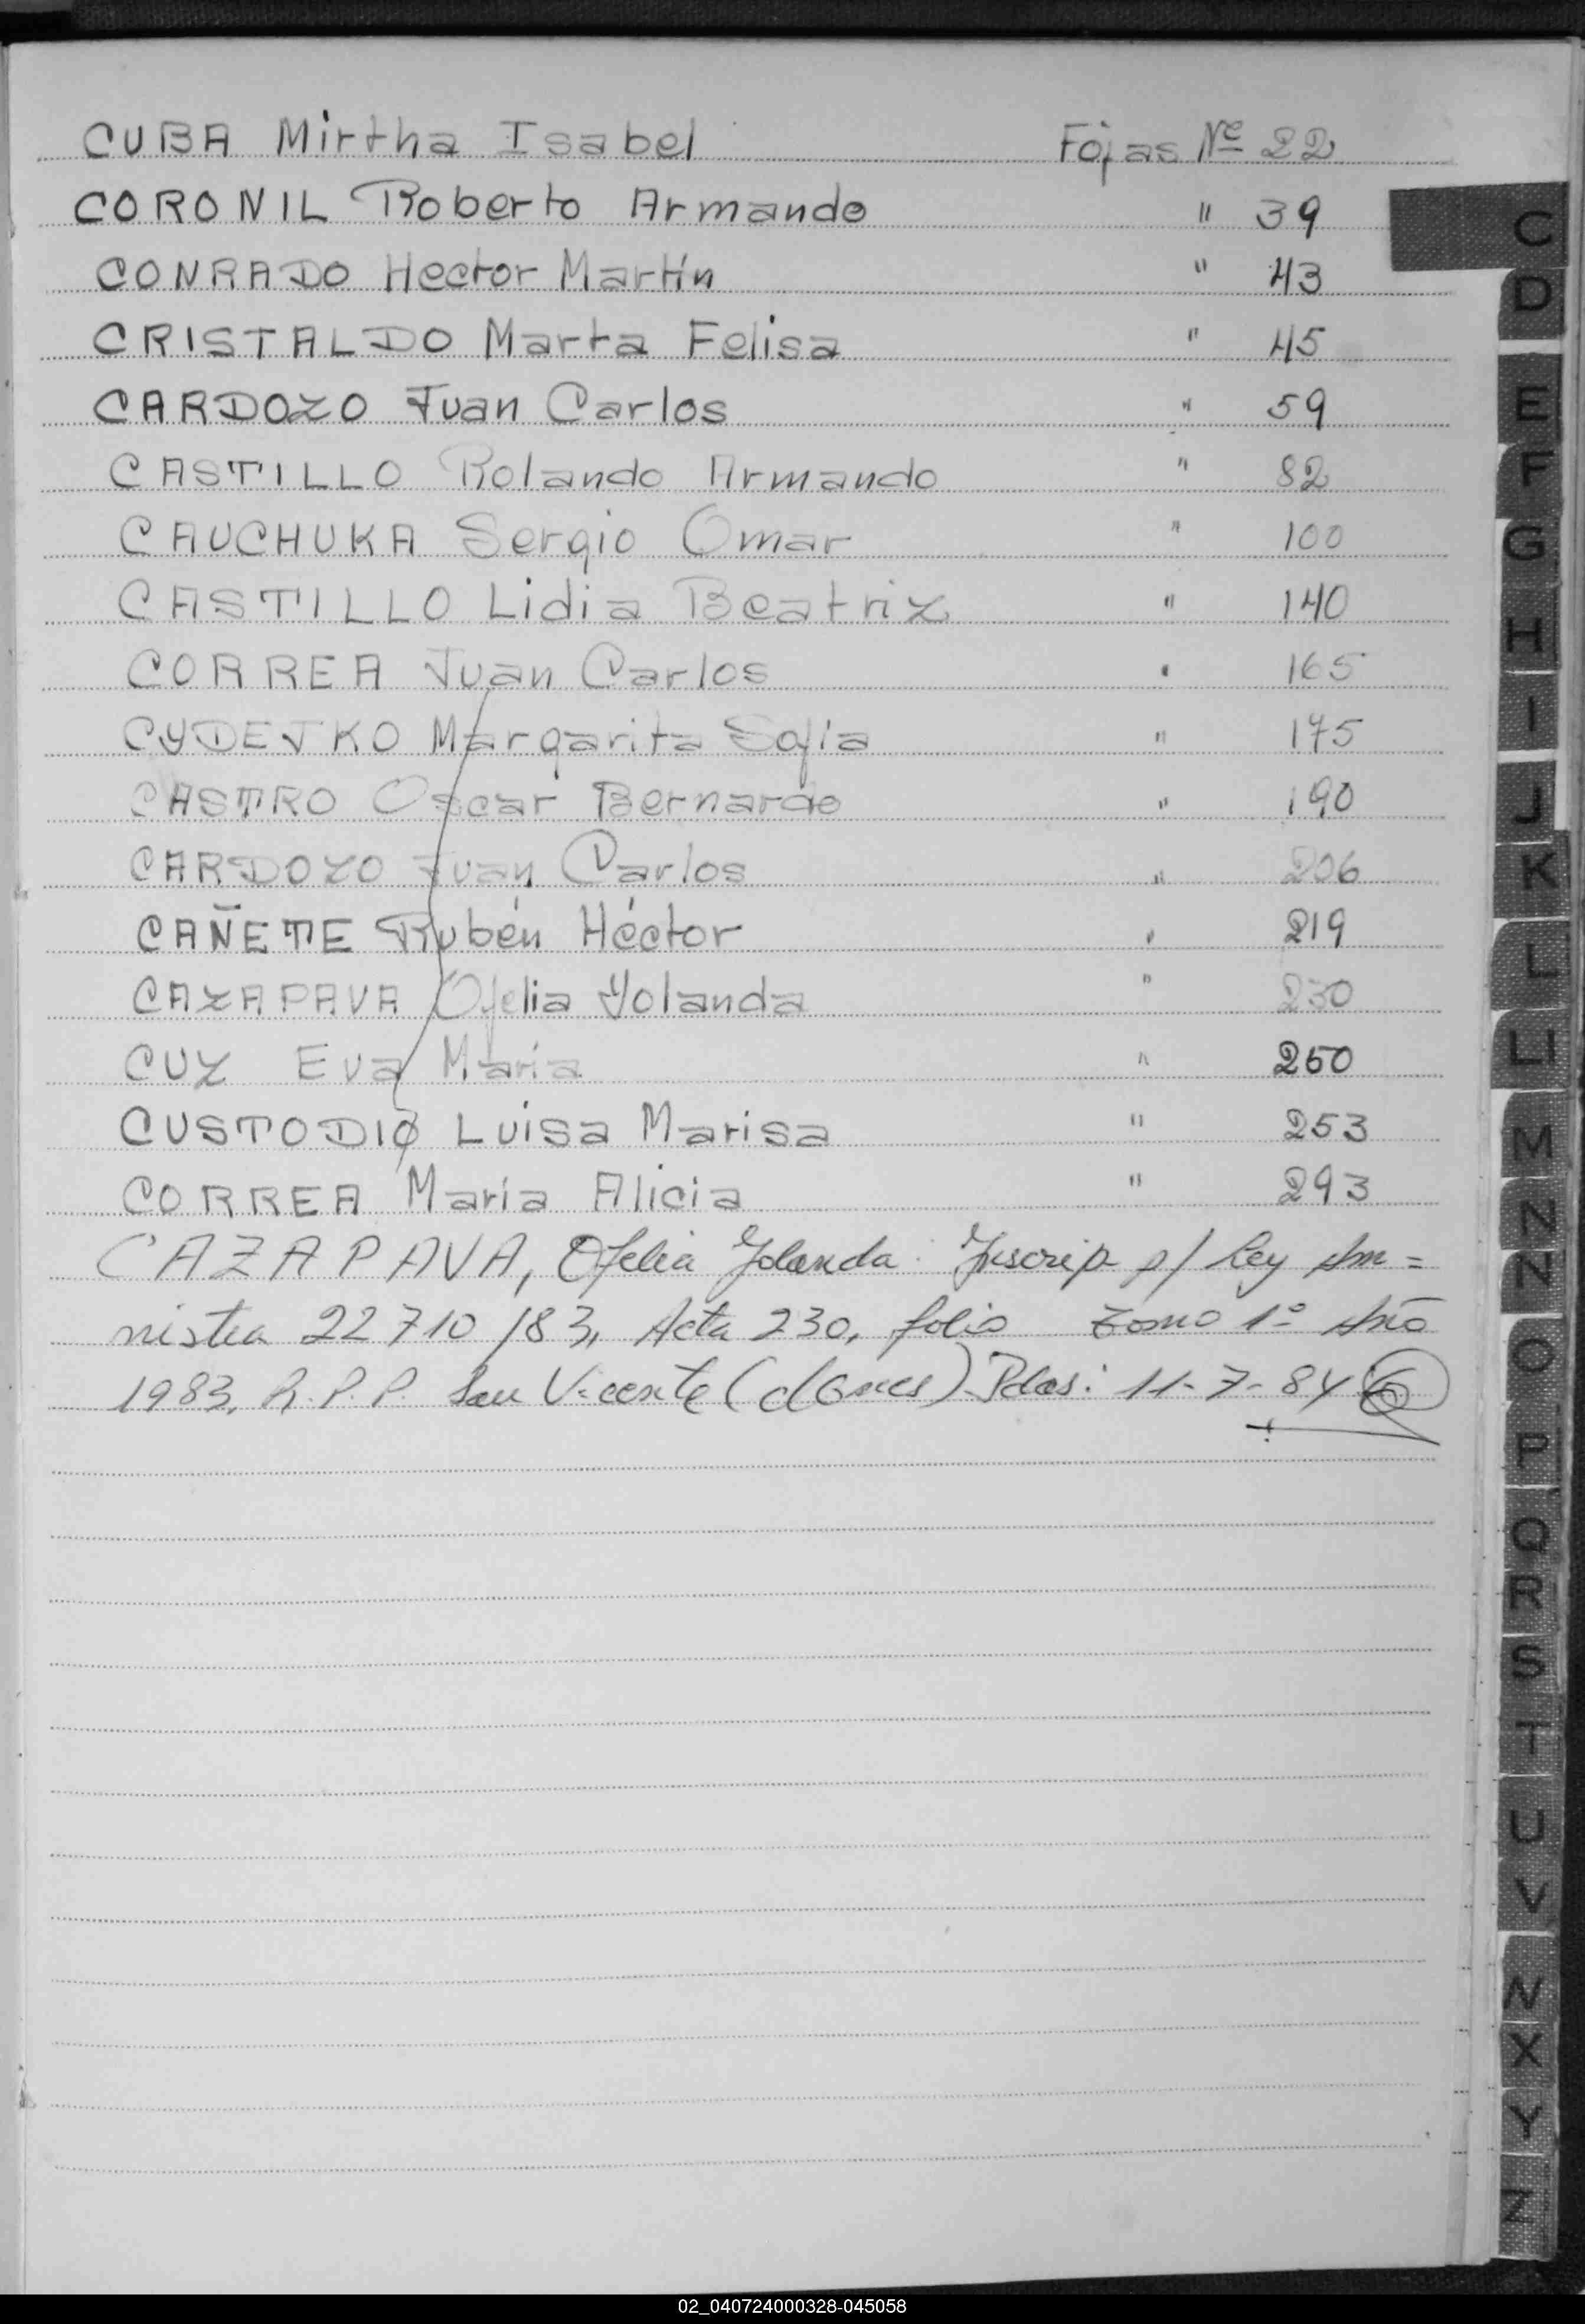 CUBA Mirtha Isabel Fojas Nº 22
CORONIL Roberto Armando " 39
CONRADO Hector Martín " 43
CRISTALDO Marta Felisa " 45
CARDOZO Juan Carlos " 59
CASTILLO Rolando Armando " 82
CAUCHUKA Sergio Omar " 100
CASTILLO Lidia Beatriz " 140
CORREA Juan Carlos " 165
CYDEJKO Margarita Sofía " 175
CASTRO Oscar Bernardo " 190
CARDOZO Juan Carlos " 206
CAÑETE Rubén Héctor " 219
CAZAPAVA Ofelia Yolanda " 230
CUZ Eva María " 250
CUSTODIO Luisa Marisa " 253
CORREA María Alicia " 293
CAZAPAVA, Ofelia Yolanda. Inscrip p/ Ley Am=
nistia 22710/83, Acta 230, folio Tomo 1º Año
1983, R.P.P. San Vicente Pdas: 11-7-84
C
D
E
F
G
H
I
J
K
L
LL
M
N
Ñ
O
P
Q
R
S
T
U
V
W
X
Y
Z
02_040724000328-045058